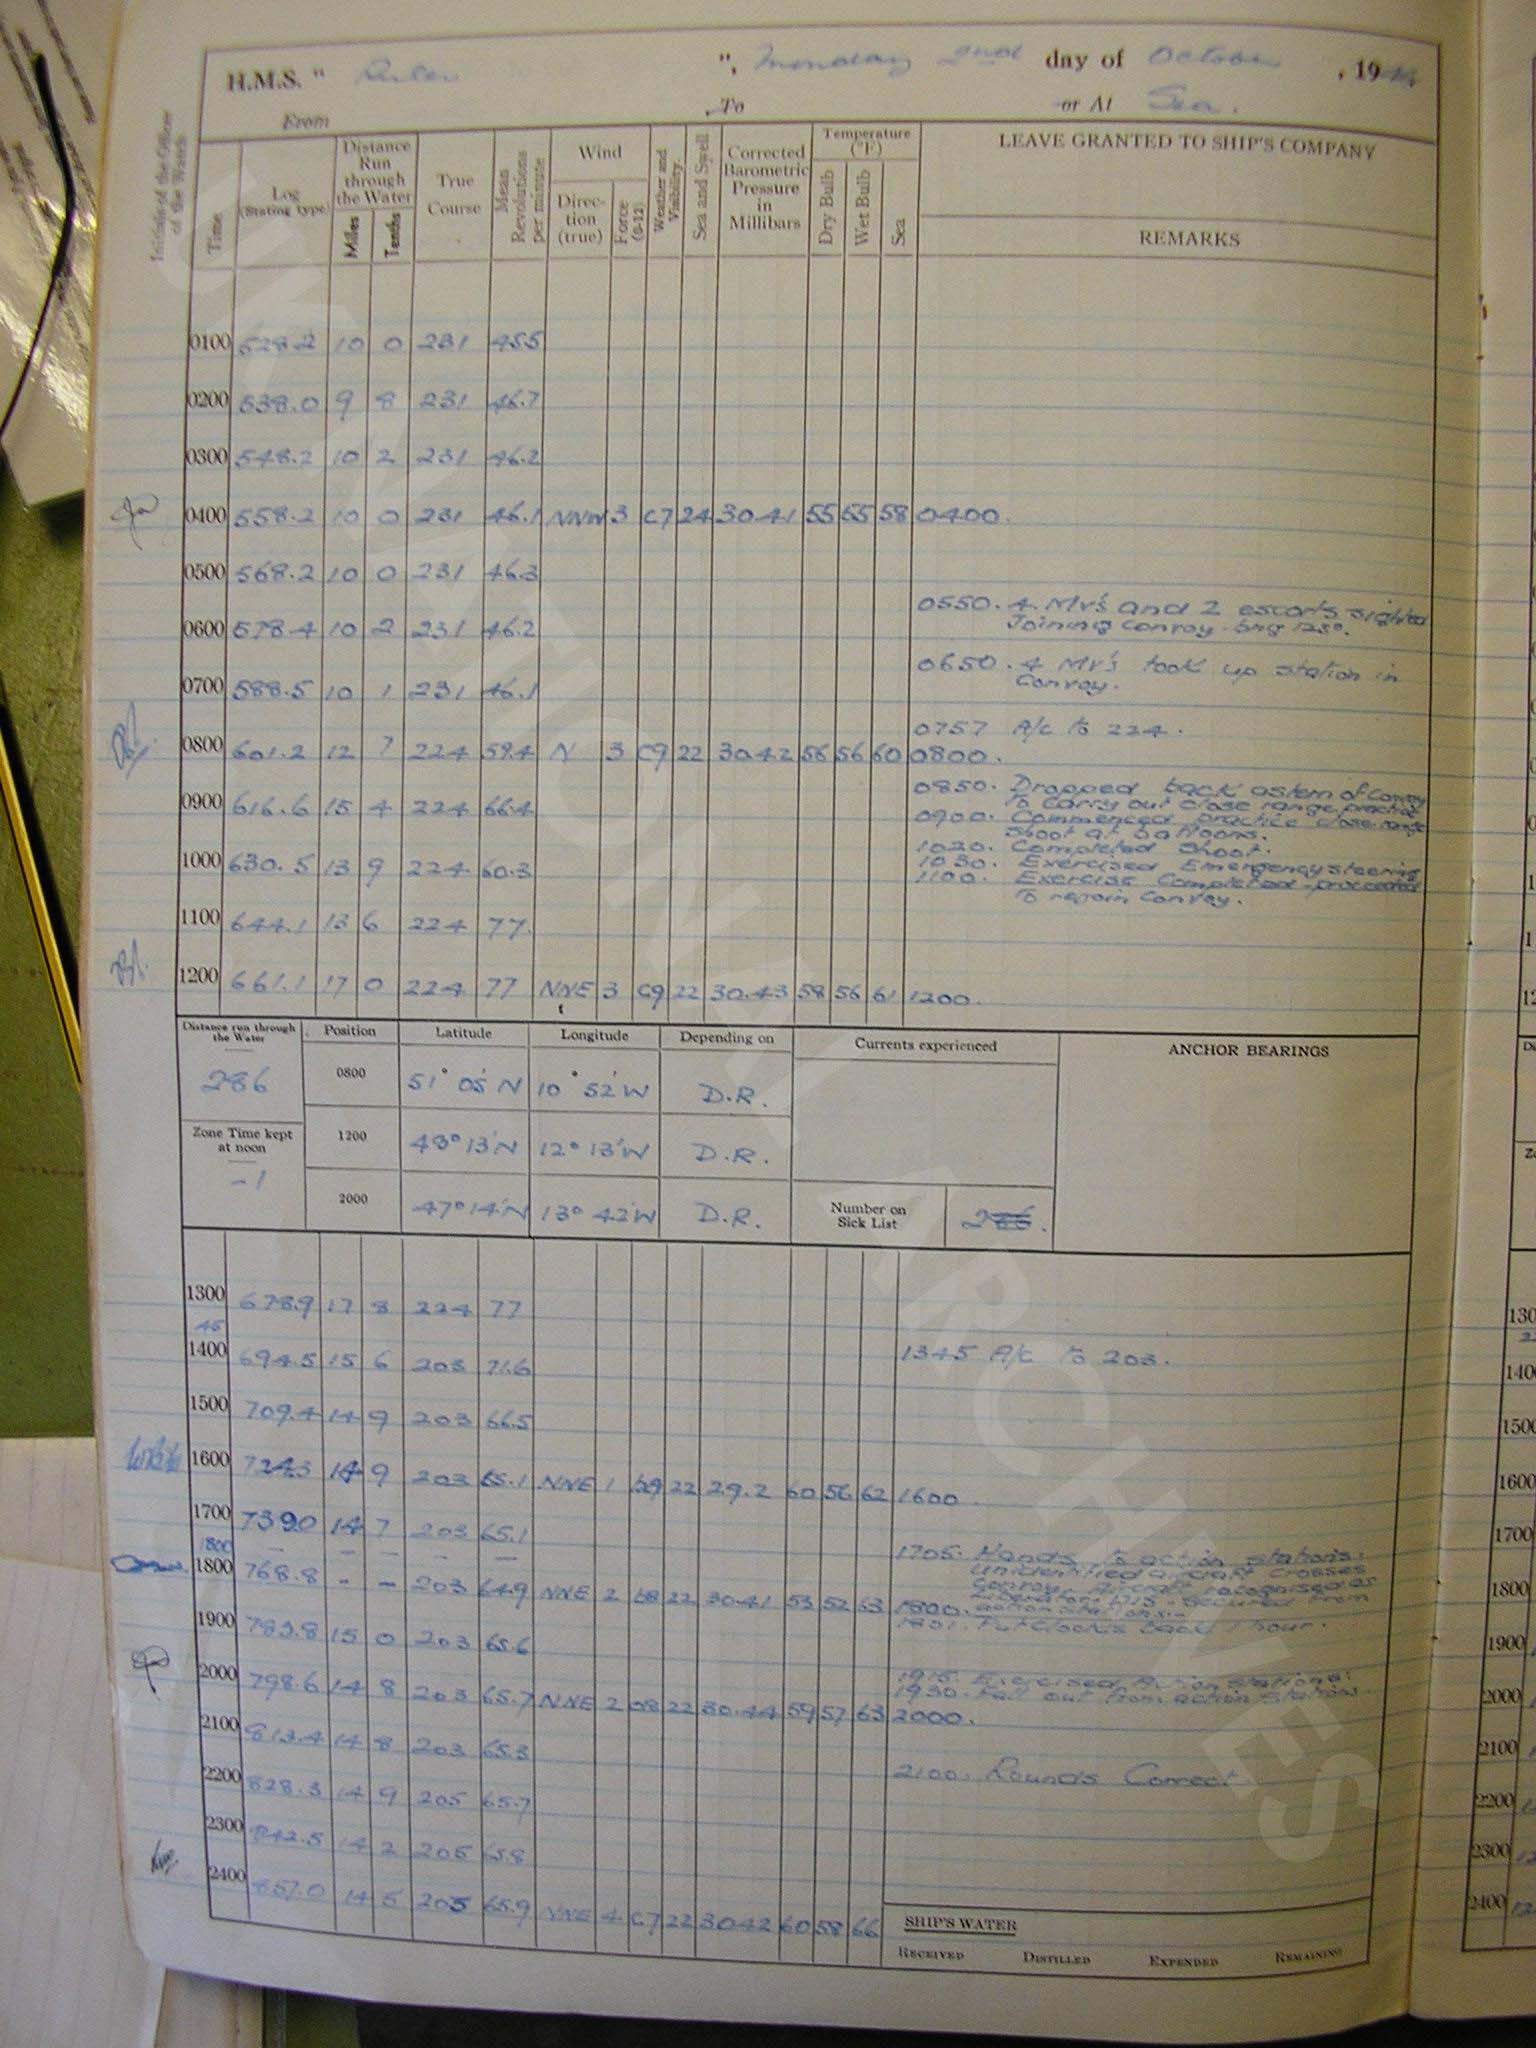 H.M.S. " Ruler ", Monday 2nd day of October , 1944
From To or At Sea.
Initials of the Officer of the Watch
Time
Log (Stating type)
Distance Run through the Water
Miles Tenths
True Course
Mean Revolutions per minute
Wind
Direction (true)
Force (0-12)
Weather and Visibility.
Sea and Swell
Corrected Barometric Pressure in Millibars
Temperature (°F)
Dry Bulb Wet Bulb Sea
LEAVE GRANTED TO SHIP'S COMPANY
REMARKS
0100 528.2 10 0 231 45.5
0200 538.0 9 8 231 46.7
0300 548.2 10 2 231 46.2
0400 558.2 10 0 231 46.1 NNW 3 C7 24 30.41 55 55 58 0400.
0500 568.2 10 0 231 46.3
0550. 4. MV's and 2 escorts sighted
0600 578.4 10 2 231 46.2 Joining Convoy brg 125°.
0650. 4 MV's took up station in
0700 588.5 10 1 231 46.1 Convoy.
0757 A/c to 224.
0800 601.2 12 7 224 59.4 N 3 C9 22 30.42 56 56 60 0800.
0850. Dropped back astern of Convoy
0900 616.6 15 4 224 66.4 To carry out close range practice
0900. Commenced practice close range
shoot at balloons.
1020. Completed Shoot.
1000 630.5 13 9 224 60.3 1030. Exercised Emergency steering
1100. Exercise Completed proceeded
To rejoin Convoy.
1100 644.1 13 6 224 77.
1200 661.1 17 0 224 77 NNE 3 C9 22 30.43 58 56 61 1200.
Distance run through the Water Position Latitude Longitude Depending on Currents experienced ANCHOR BEARINGS
286 0800 51° 05' N 10° 52' W D.R.
Zone Time kept at noon 1200 48° 13' N 12° 13' W D.R.
-1 2000 47° 14' N 13° 42' W D.R. Number on Sick List
1300 678.9 17 8 224 77
45
1400 694.5 15 6 203 71.6 1345 A/c To 203.
1500 709.4 14 9 203 66.5
1600 724.3 14 9 203 65.1 NNE 1 b9 22 29.2 60 56 62 1600.
1700 739.0 14 7 203 65.1
1705. Hands To action stations.
1800 — — — — — Unidentified aircraft crosses
1800 768.8 - - 203 64.9 NNE 2 b8 22 30.41 53 52 63 Convoy. Aircraft recognised as
Liberator. 1715. Secured from
1800. action stations.
1801. Put Clocks back 1 hour.
1900 783.8 15 0 203 65.6
1915. Exercised Action Stations.
1930. Fall out from action stations.
2000 798.6 14 8 203 65.7 NNE 2 08 22 30.44 59 57 63 2000.
2100 813.4 14 8 203 65.3
2100. Rounds Correct
2200 828.3 14 9 205 65.7
2300 842.5 14 2 205 65.8
2400 857.0 14 5 205 65.9 NNE 4 C7 22 30.42 60 58 66
SHIP'S WATER
RECEIVED DISTILLED EXPENDED REMAINING
UK NATIONAL ARCHIVES